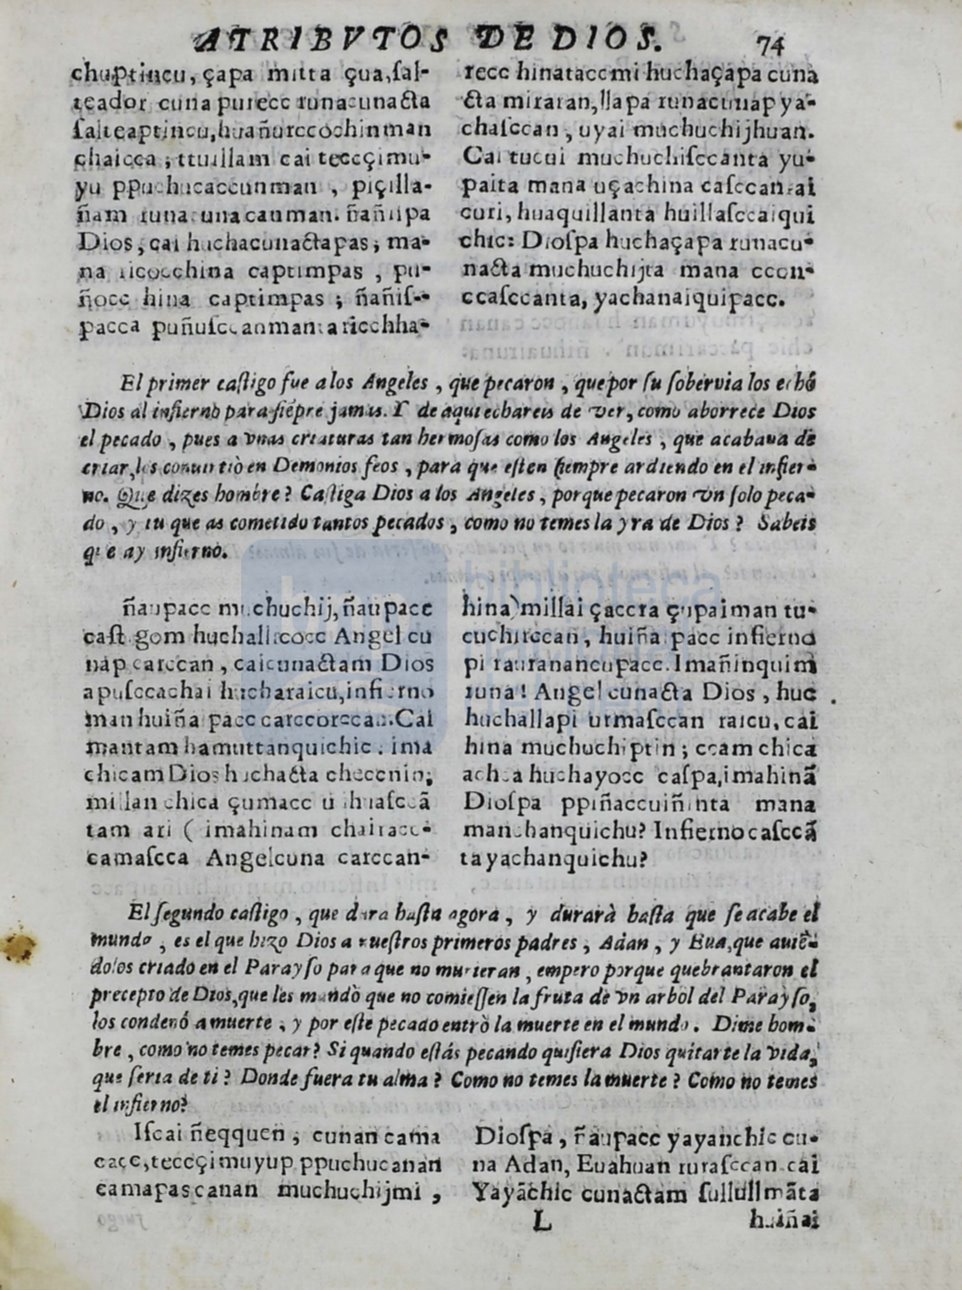 ATRIBVTOS DE DIOS. 74
chuptincu, çapa mitta çua, ſal-
teador cuna purecc runacunacta
ſalteaptincu, huañurccochinman
chaicca; ttuillam cai teccçimu-
yu ppuchucaccunman, piçilla-
ñam runacunacanman. ñañispa
Dios, cai huchacunactapas; ma-
na ricocchina captimpas, pu-
ñocc hina captimpas; ñañiſ-
pacca puñuſccanmanta ricchha-
recc hinataccmi huchaçapa cuna
cta miraran, llapa runacunap ya-
chaſccan, uyai muchuchijhuan.
Cai tucui muchuchiſccanta yu-
paita mana uçachina caſccanrai
curi, huaquillanta huillaſccaiqui
chic: Dioſpa huchaçapa runacu-
nacta muchuchijta mana cccon-
ccaſccanta, yachanaiquipacc.
El primer caſtigo fue a los Angeles, que pecaron, que por ſu ſobervia los echó
Dios al infierno para ſiẽpre jamas. Y de aqui echareis de ver, como aborrece Dios
el pecado, pues a vnas criaturas tan hermoſas como los Angeles, que acabaua de
criar, los conuirtiò en Demonios feos, para que eſten ſiempre ardiendo en el infier-
no. Que dizes hombre? Caſtiga Dios a los Angeles, porque pecaron vn ſolo peca-
do, y tu que as cometido tantos pecados, como no temes la yra de Dios? Sabeis
que ay infierno.
ñaupacc muchuchij, ñaupacc
caſtigom huchallicocc Angel cu
nap carccan, caicunactam Dios
apuſccachai hucharaicu, infierno
man huiñaipacc carccorccan. Cai
mantam hamuttanquichic. ima
chicam Dios huchacta checcnin;
millan chica çumacc
tam ari ( imahinam chairacc-
camaſcca Angelcuna carccan-
hina) millai çaccra çupaiman tu-
cuchirccan, huiñaipacc infierno
pi rauranancupacc. Imañinquim
runa! Angelcunacta Dios, huc
huchallapi urmaſccan raicu, cai
hina muchuchiptin; ccam chica
achca huchayocc caſpa, imahinã
Dioſpa ppiñaccuiñinta mana
manchanquichu? Infierno caſccã
ta yachanquichu?
El ſegundo caſtigo, que dura haſta agora, y durarà haſta que ſe acabe el
mundo, es el que hizo Dios a nueſtros primeros padres, Adan, y Eua, que auiẽ-
dolos criado en el Parayſo para que no murieran, empero porque quebrantaron el
precepto de Dios, que les mandò que no comieſſen la fruta de vn arbol del Parayſo,
los condenó a muerte, y por eſte pecado entrò la muerte en el mundo. Dime hom-
bre, como no temes pecar? Si quando eſtás pecando quiſiera Dios quitarte la vida,
que ſeria de ti? Donde fuera tu alma? Como no temes la muerte? Como no temes
el infierno?
Iſcai ñeqquen, cunan cama
cacc, teccçimuyup ppuchucanan
camapascanan muchuchijmi,
Dioſpa, ñaupacc yayanchic cu-
na Adan, Euahuan ruraſccan cai
Yayãchic cunactam ſullullmãta
L huiñai